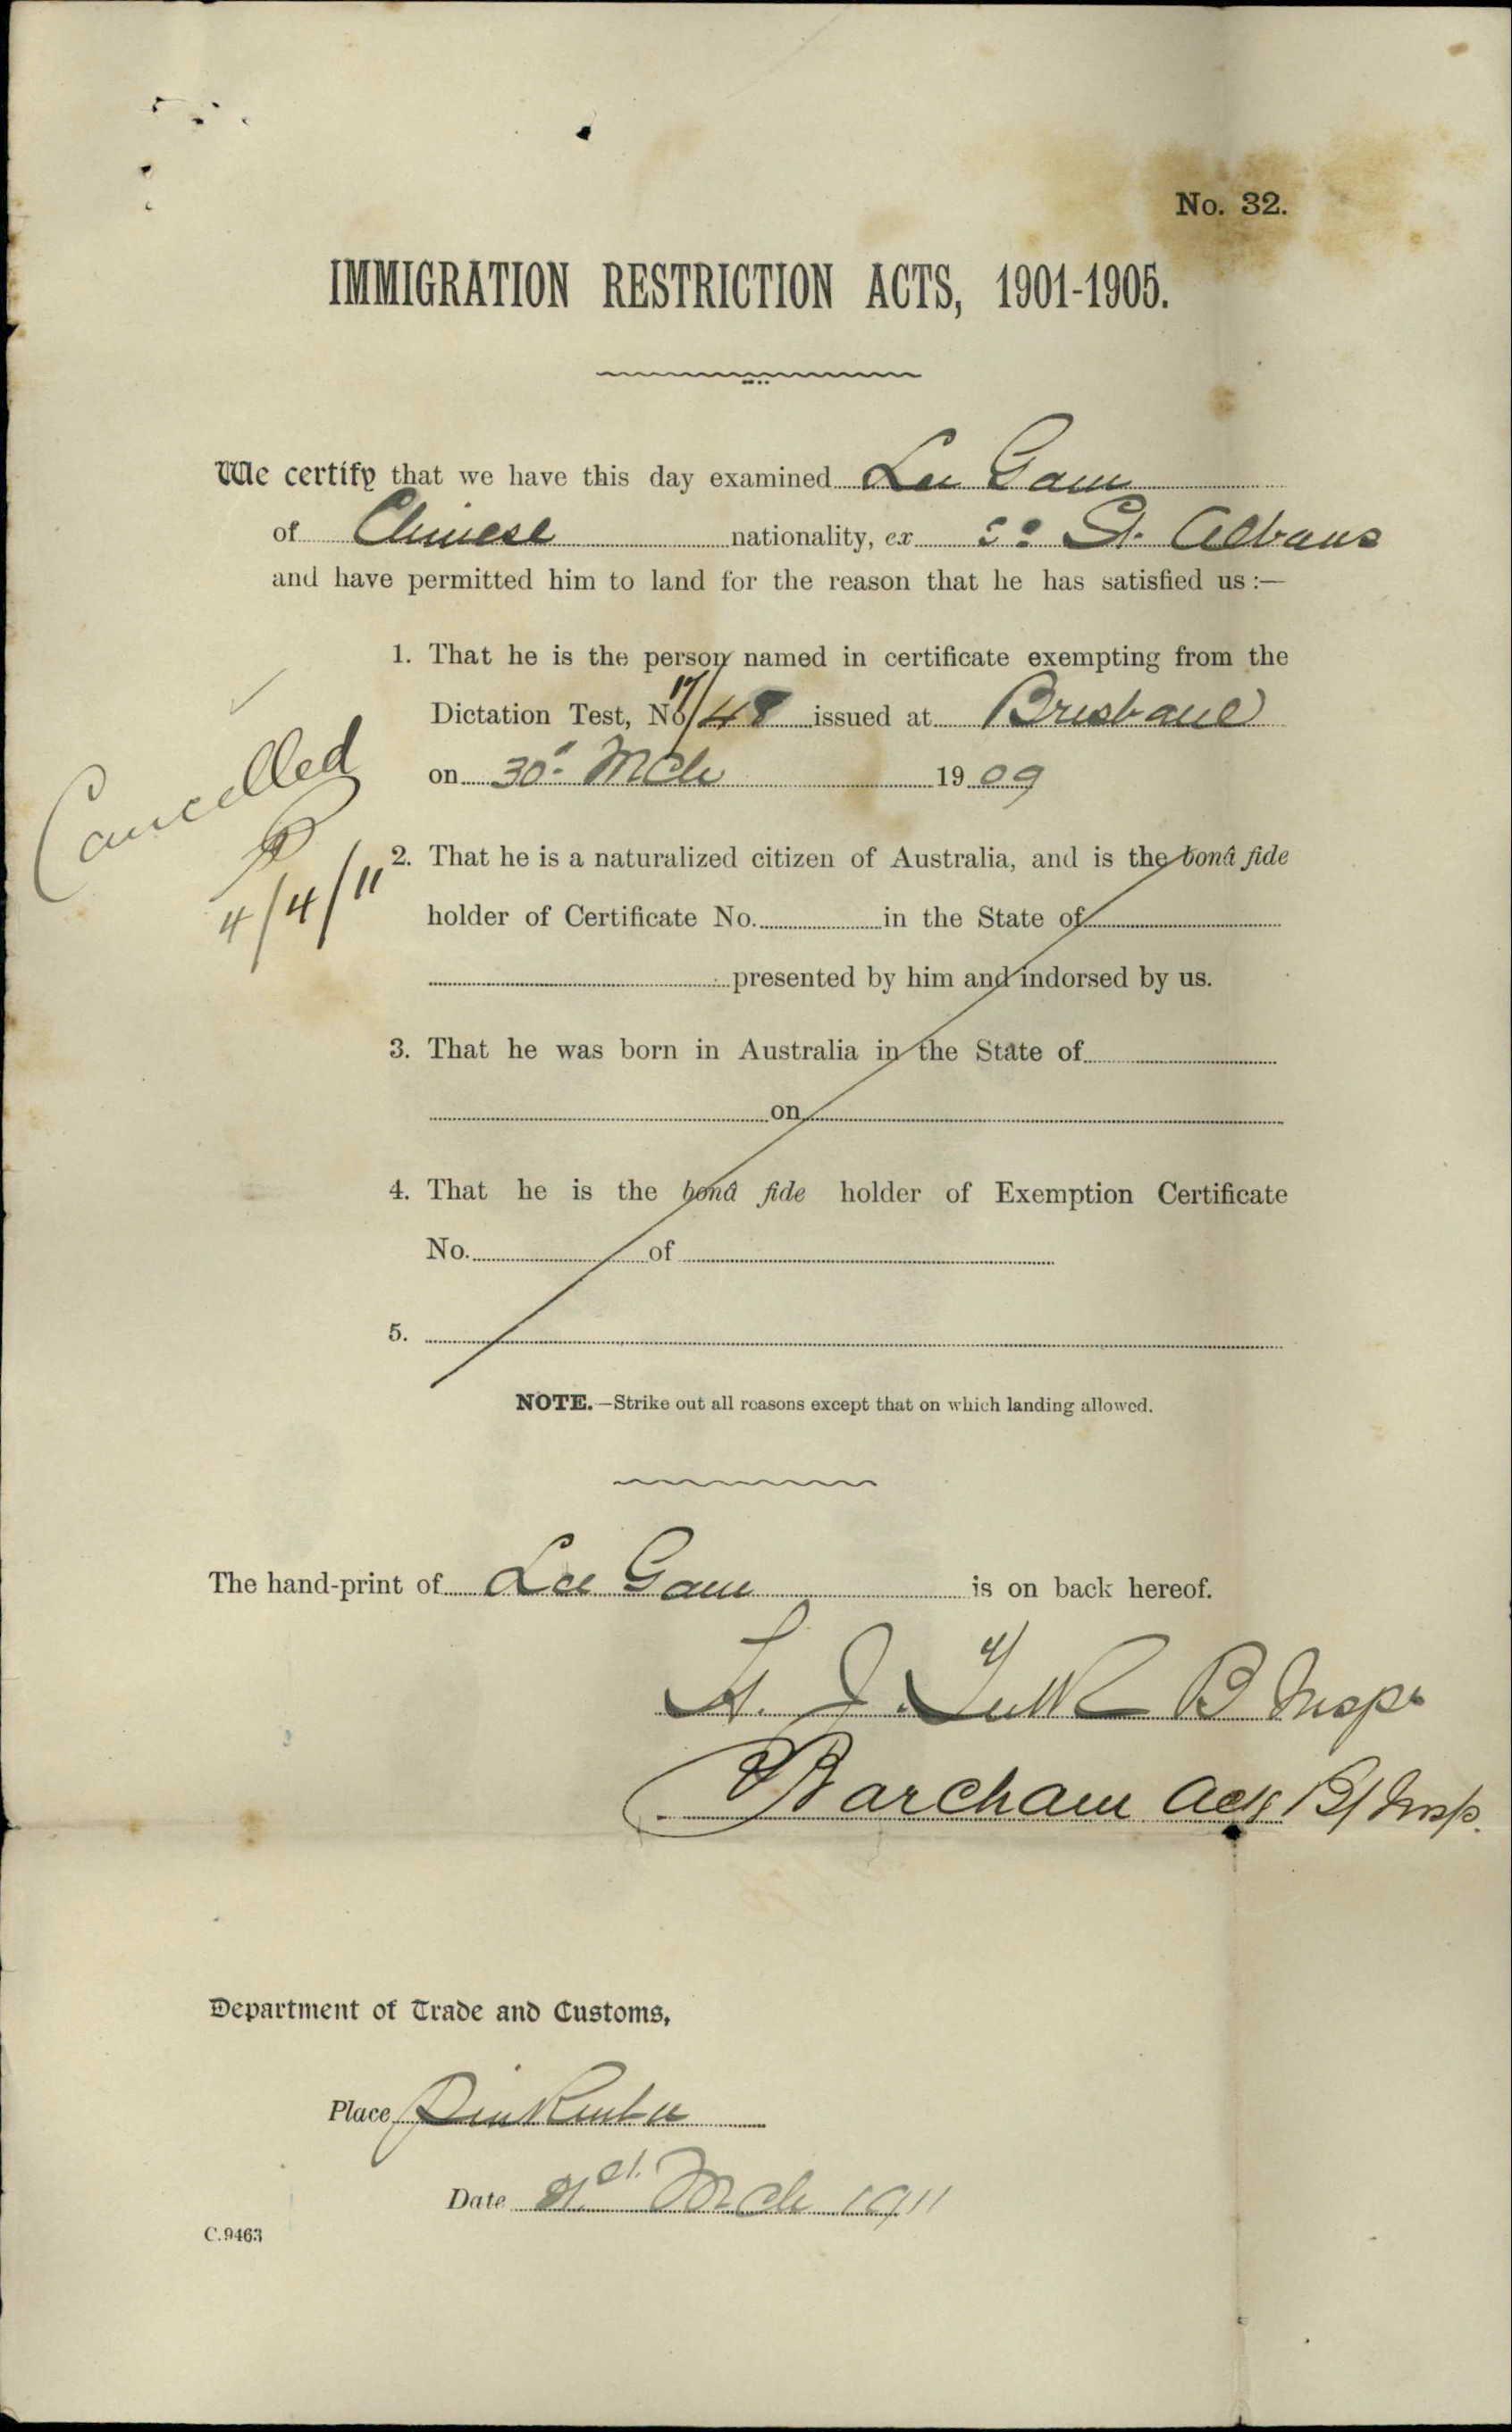 No. 32.
IMMIGRATION RESTRICTION ACTS, 1901-1905.
We certify that we have this day examined Lee Gam
of Chinese nationality, ex SS St. Albans
and have permitted him to land for the reason that he has satisfied us :—
1. That he is the person named in certificate exempting from the
Dictation Test, No 17/48 issued at Brisbane
on 30th Mch 1909
Cancelled
4/4/11
2. That he is a naturalized citizen of Australia, and is the bonâ fide
holder of Certificate No. in the State of
presented by him and indorsed by us.
3. That he was born in Australia in the State of
on
4. That he is the bonâ fide holder of Exemption Certificate
No. of
5.
NOTE.—Strike out all reasons except that on which landing allowed.
The hand-print of Lee Gam is on back hereof.
B Inspr
Barcham Actg B/Insp.
Department of Trade and Customs,
Place Pinkenba
Date 31st Mch 1911
C.9463